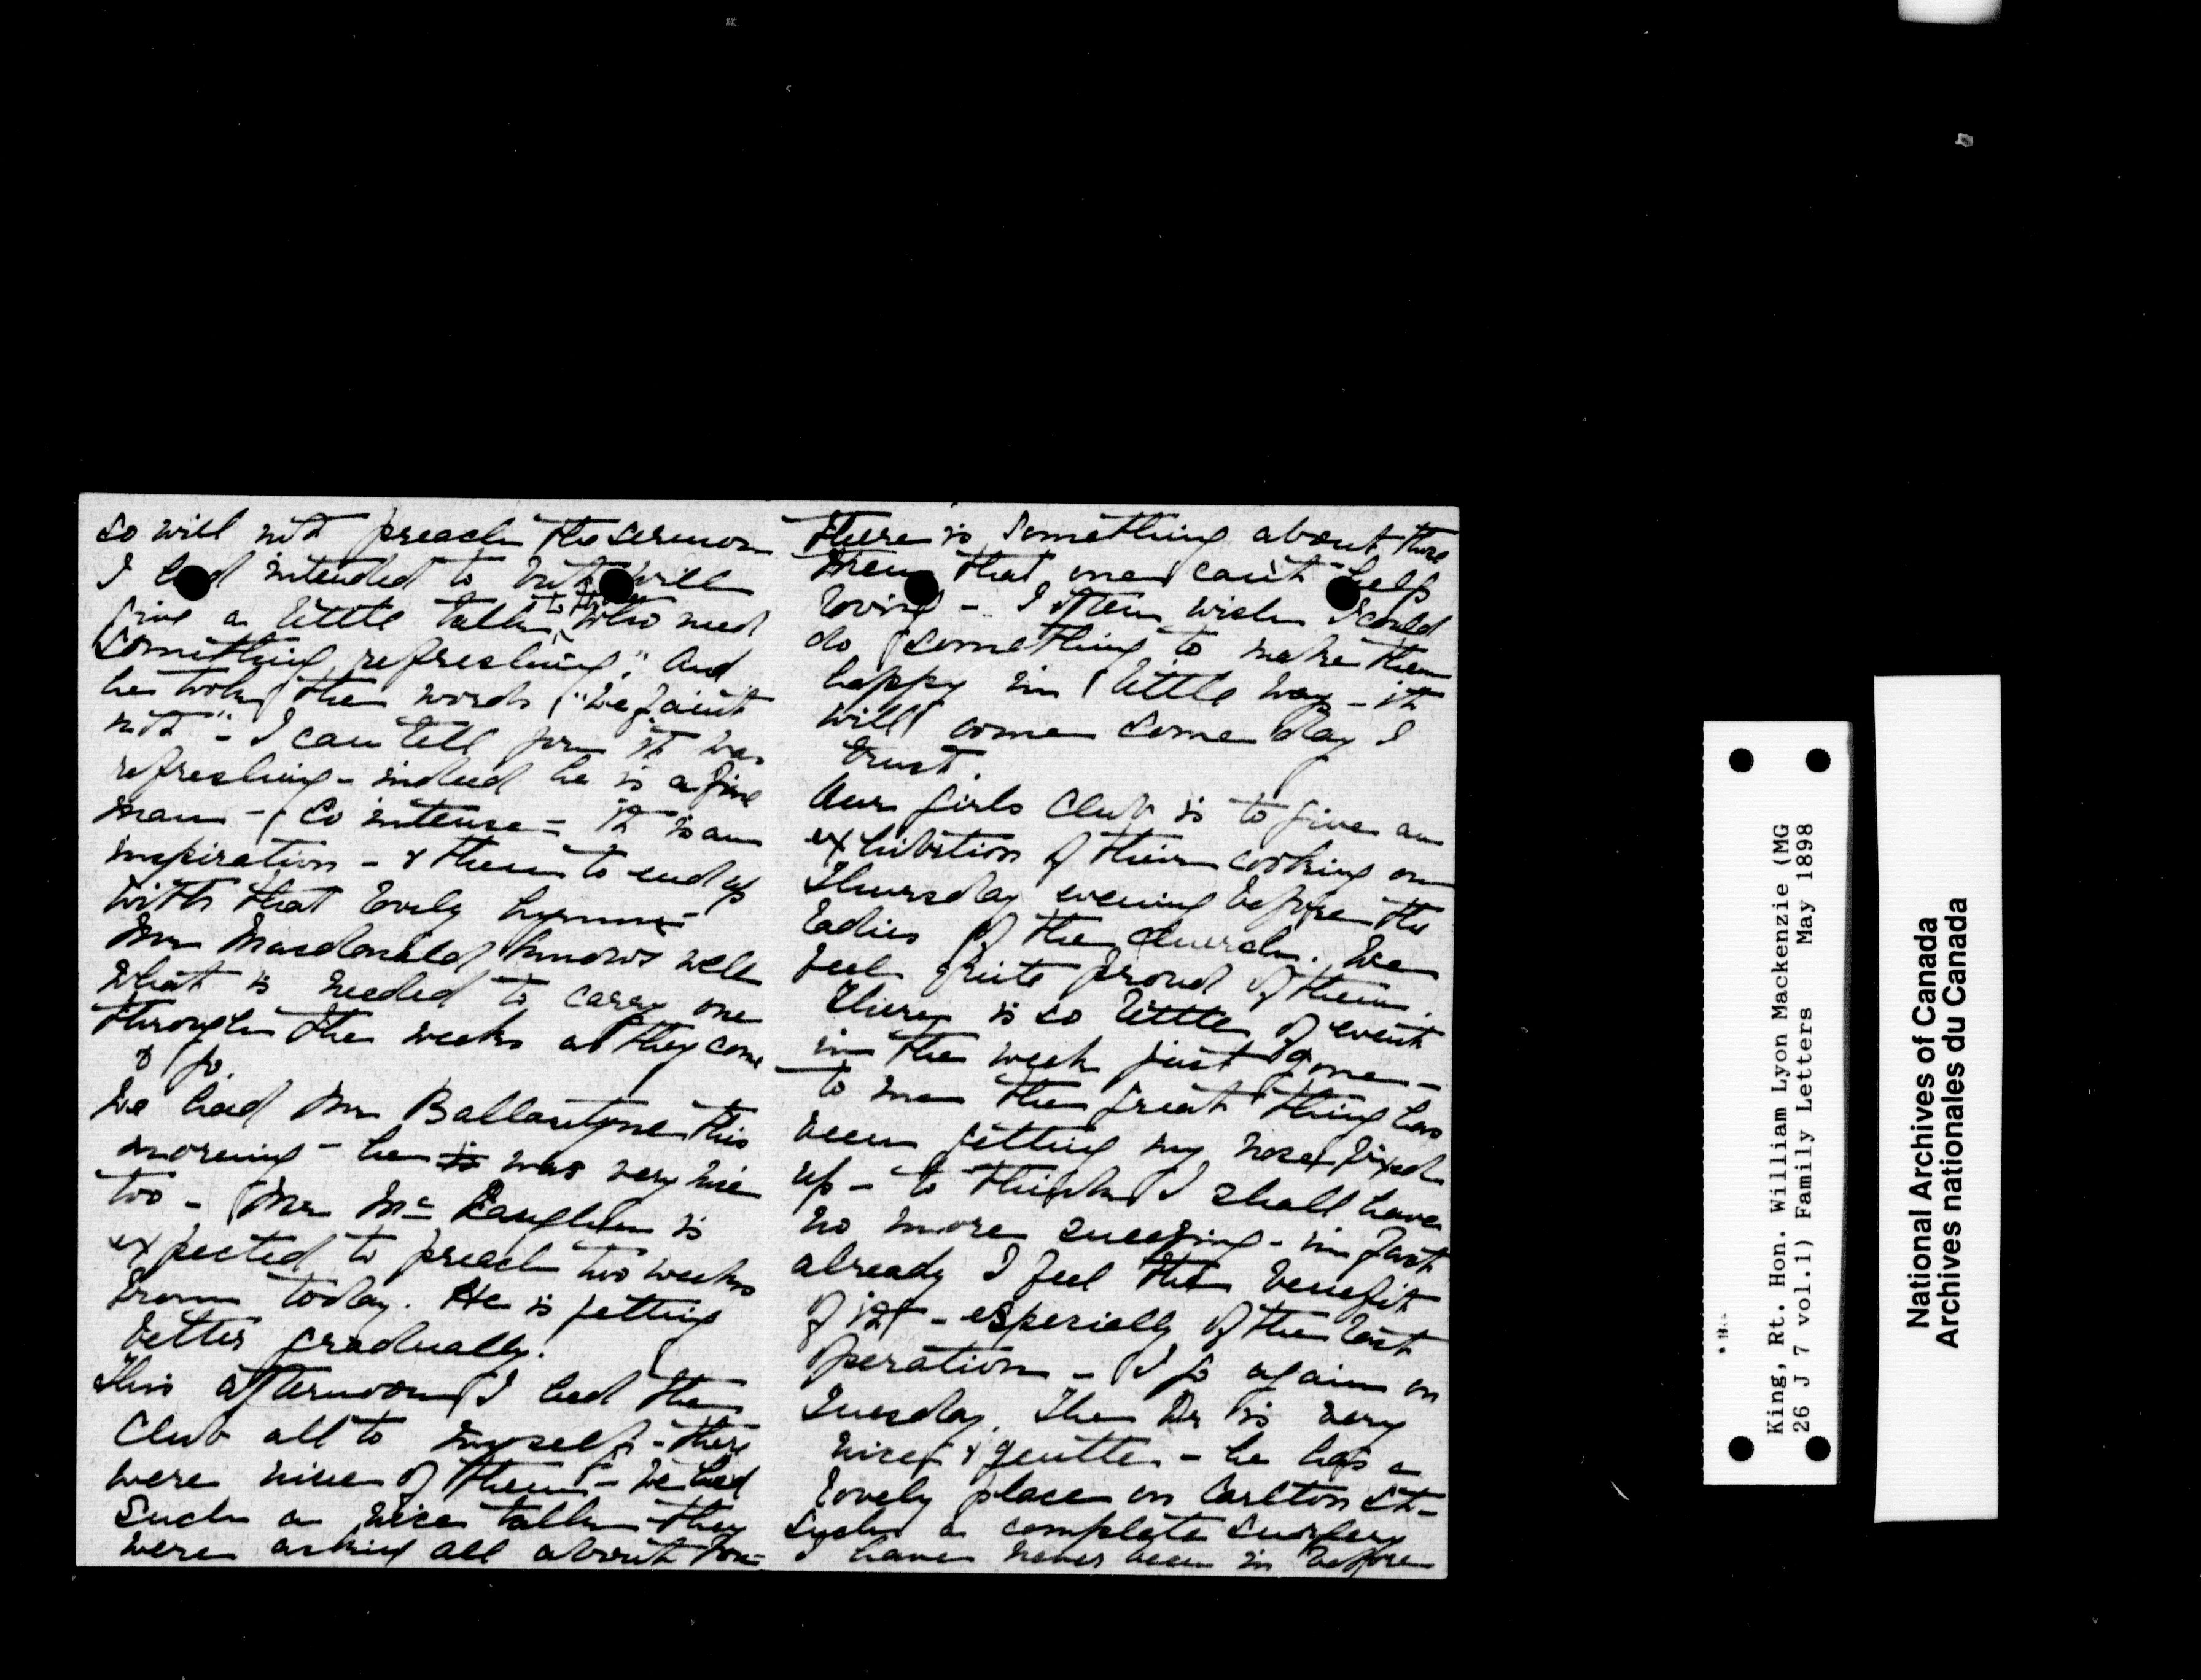 so will not preach the sermon
I had intended to but will
give a little talk to those who need
something refreshing." And
he took the words "We faint
not" - I can tell you it was
refreshing - indeed he is a fine
man - so intense - it is an
inspiration - & then to end up
with that lovely hymn -
Mr Macdonald knows well
what is needed to carry one
through the weeks as they come
& go.
We had Mr Ballantyne this
morning - he is was very nice
too - Mr Mc Laughlin is
expected to preach two weeks
from today. He is getting
better gradually.
This afternoon I had the
Club all to myself - there
were nine of them - we had
such a nice talk - they
were asking all about you -
There is something about those
men that one can't help
loving - I often wish I could
do something to make them
happy in little way - it
will come some day I
trust.
Our girls Club is to give an
exhibition of their cooking on
Thursday evening before the
ladies of the church. We
feel quite proud of them.
There is so little of event
in the week just gone -
to me the great thing has
been getting my nose fixed
up - to think I shall have
no more sneezing - in fact
already I feel the benefit
of it - especially of the last
operation - I go again on
Tuesday. The Dr is very
nice & gentle - he has a
lovely place on Carlton St -
Such a complete surgery
I have never been in before
King, Rt. Hon. William Lyon Mackenzie (MG
26 J 7 vol.1) Family Letters May 1898
National Archives of Canada
Archives nationales du Canada